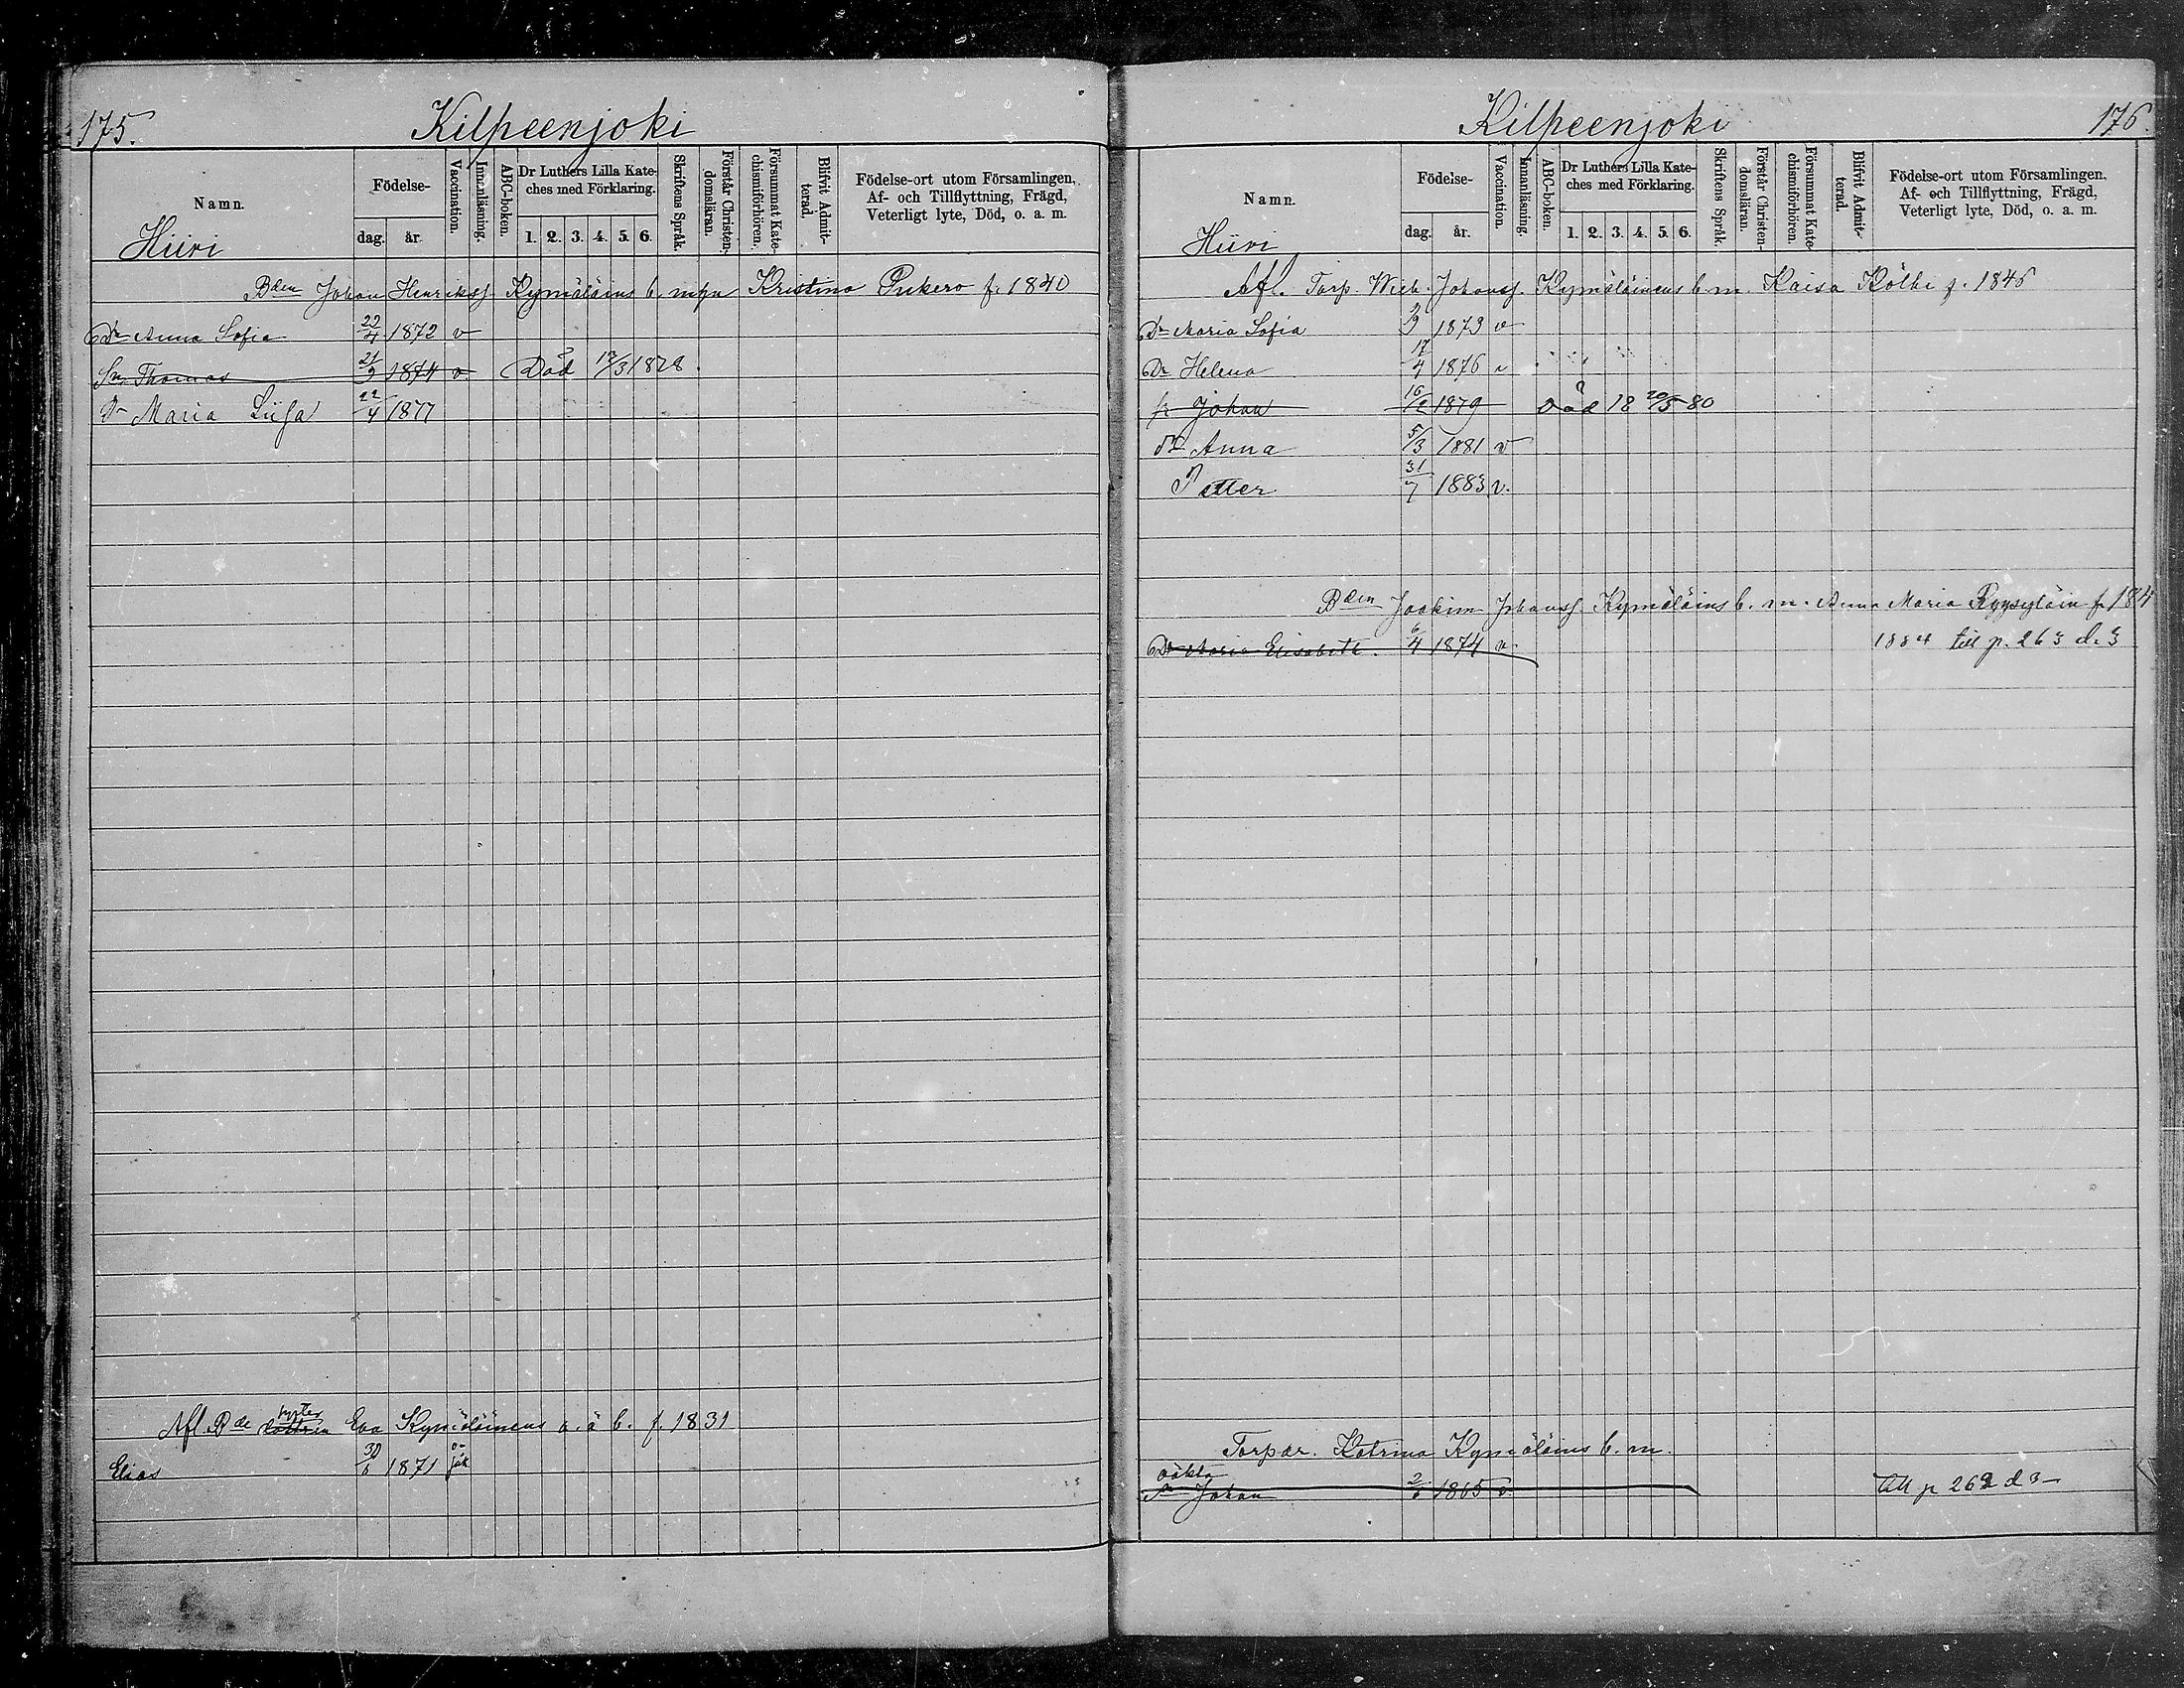 175.
Kilpeenjoki
Namn.
Födelse-
dag.
år.
Vaccination.
Innanläsning.
ABC-boken.
Dr Luthers Lilla Kate-
ches med Förklaring.
1. 2. 3. 4. 5. 6.
Skriftens Språk.
Förstår Christen-
domsläran.
Försummat Kate-
chismiförhören.
Blifvit Admit-
terad.
Födelse-ort utom Församlingen,
Af- och Tillflyttning, Frägd,
Veterligt lyte, Död, o. a. m.
Hiiri
Bden Johan Henrikss. Kymäläins b. m Kristina Pukero f. 1840
Dr Anna Sofia 22/4 1872 v
Sn Thomas 21/9 1874 v Död 12/3 1878.
Dr Maria Liisa 22/4 1877
Afl. Bde syster Eva Kymäläinens o. ä b. f. 1831
Elias 30/6 1871
176.
Kilpeenjoki
Namn.
Födelse-
dag.
år.
Vaccination.
Innanläsning.
ABC-boken.
Dr Luthers Lilla Kate-
ches med Förklaring.
1. 2. 3. 4. 5. 6.
Skriftens Språk.
Förstår Christen-
domsläran.
Försummat Kate-
chismiförhören.
Blifvit Admit-
terad.
Födelse-ort utom Församlingen.
Af- och Tillflyttning, Frägd,
Veterligt lyte, Död, o. a. m.
Hiiri
Afl. Torp. Mich. Johanss. Kymäläinens b. m. Kaisa Kölhi f. 1846
Dr Maria Sofia 1873 v
Dr Helena 17/4 1876 v
sn Johan 16/2 1879 Död 18 20/5 80
dr Anna 5/3 1881 v
Petter 31/7 1883 v.
Bden Joakim Johanss. Kymäläins b. m. Anna Maria Ryysyläin f. 184
Dr Maria Elisabeth. 6/4 1874 v. 1884 till p. 263 d. 3
Torpar. Katrina Kymäläins b. m.
oäkta
Sn Johan 2/6 1865 v. till p 262 d 3